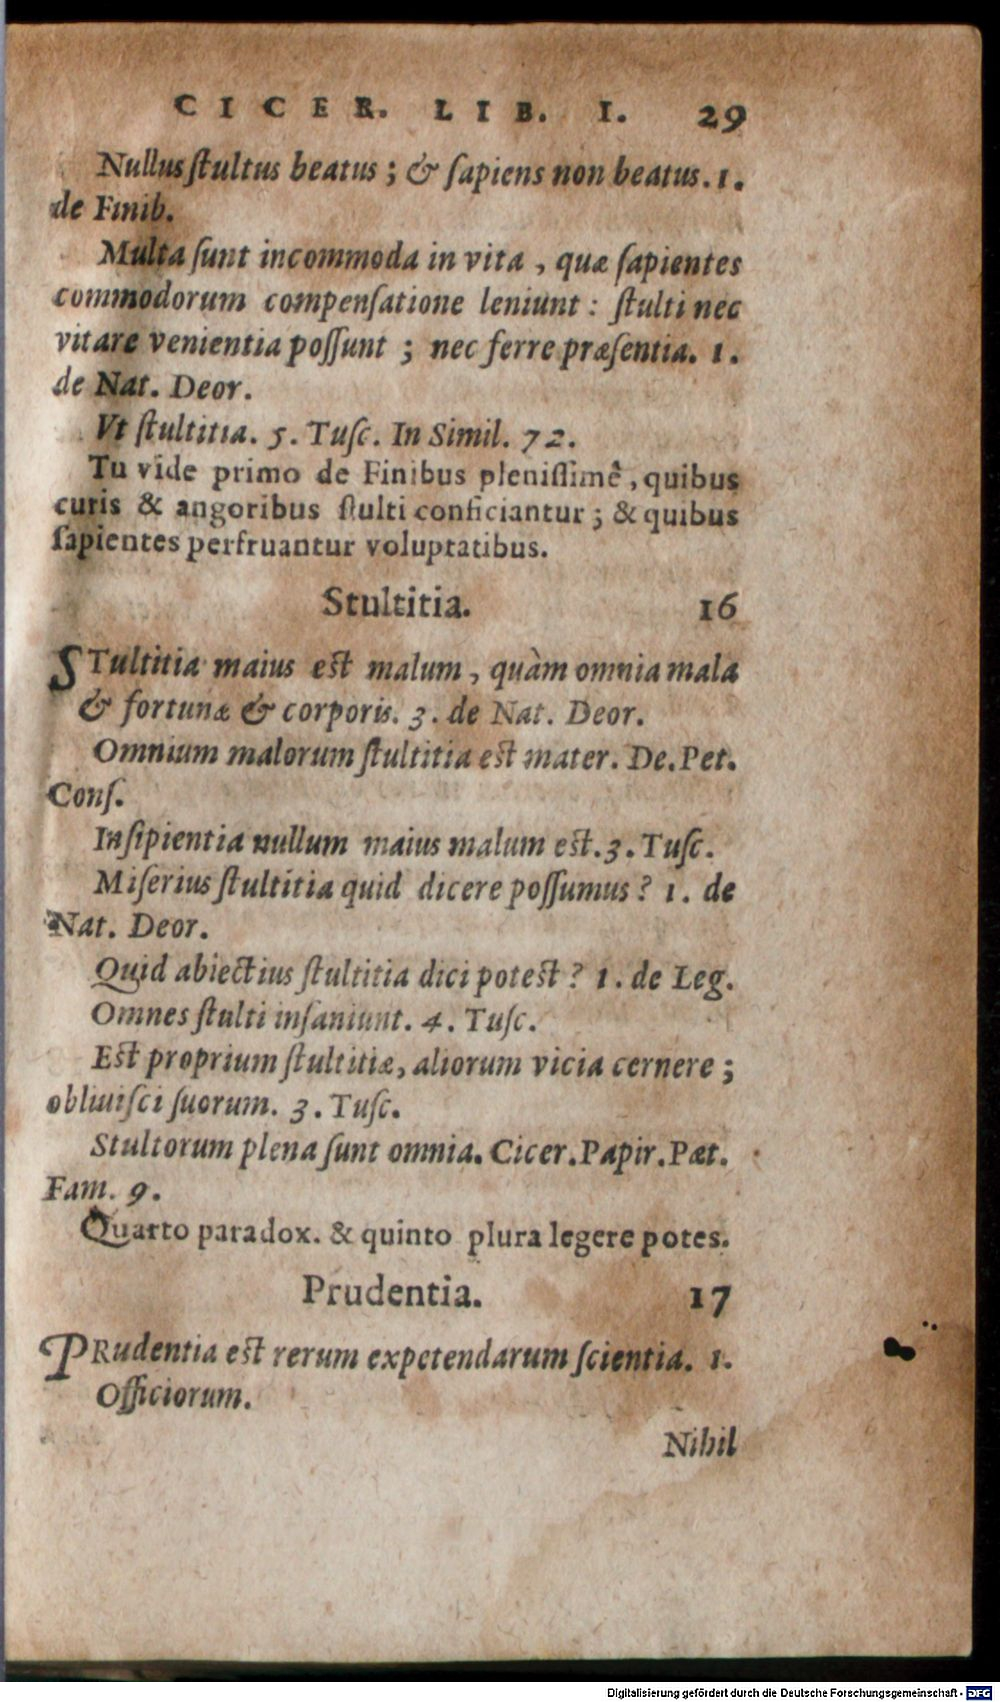 CICER. LIB. I. 29
Nullus ſtultus beatus ; & ſapiens non beatus. 1.
de Finib.
Multa ſunt incommoda in vita , quæ ſapientes
commodorum compenſatione leniunt : ſtulti nec
vitare venientia poſſunt ; nec ferre præſentia. 1.
de Nat. Deor.
Vt ſtultitia. 5. Tuſc. In Simil. 72.
Tu vide primo de Finibus pleniſſimè , quibus
curis & angoribus ſtulti conficiantur ; & quibus
ſapientes perfruantur voluptatibus.
Stultitia. 16
STultitia maius est malum , quàm omnia mala
& fortunæ & corporis. 3. de Nat. Deor.
Omnium malorum ſtultitia est mater. De. Pet.
Conſ.
Inſipientia nullum maius malum est. 3. Tuſc.
Miſerius ſtultitia quid dicere poſſumus ? 1. de
Nat. Deor.
Quid abiectius ſtultitia dici potest ? 1. de Leg.
Omnes ſtulti inſaniunt. 4. Tuſc.
Est proprium ſtultitiæ, aliorum vicia cernere ;
obliuiſci ſuorum. 3. Tuſc.
Stultorum plena ſunt omnia. Cicer. Papir. Pæt.
Fam. 9.
Quarto paradox. & quinto plura legere potes.
Prudentia. 17
PRudentia est rerum expetendarum ſcientia. 1.
Officiorum.
Nihil
Digitalisierung gefördert durch die Deutsche Forschungsgemeinschaft - DFG